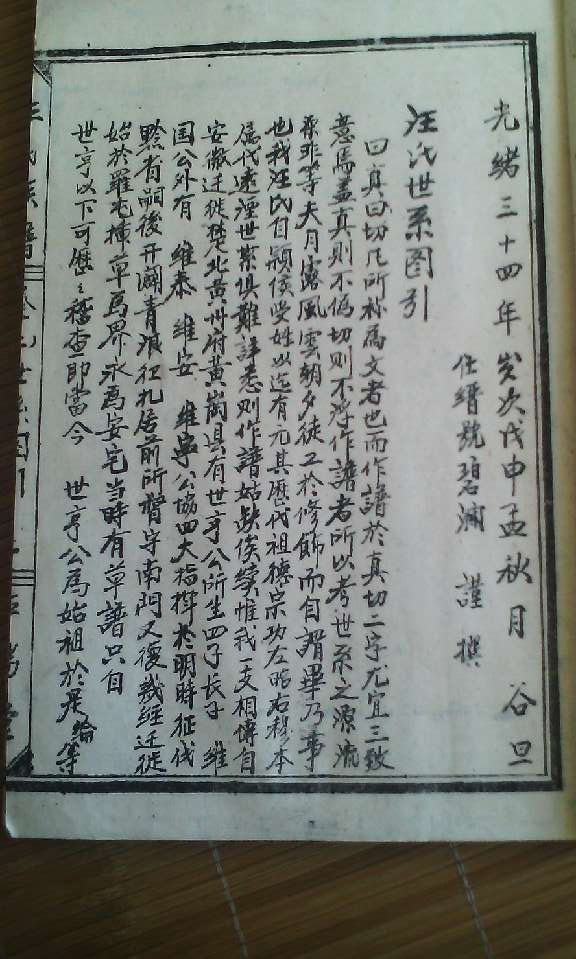 光緒三十四年歲次戊申孟秋月 谷旦
仕縉號碧浦 謹撰
汪氏世系图引
曰真曰切凡所称為文者也而作譜於真切二字尤宜三致
意焉盖真則不偽切則不浮作譜者所以考世系之源流
系非等夫月露風雲朝夕徒工於修飾而自謂畢乃事
也我汪氏自颖侯受姓以迄有元其歷代祖德宗功左昭右穆本
属代遠湮世系俱難詳悉則作譜姑缺俟犛惟我一支相傳自
安徽迁徙楚北黄州府黄崗县有世亨公所生四子長子 維
国公外有 維泰 維安 維寧公協四大指揮於明時征伐
黔省嗣後开阔青浪征扎居前所督守南門又復裁經迁徙
始於羅屯插草為界永為安宅当時有草譜只自
世亨以下可歷々稽查即當今 世亨公為始祖於是綸等